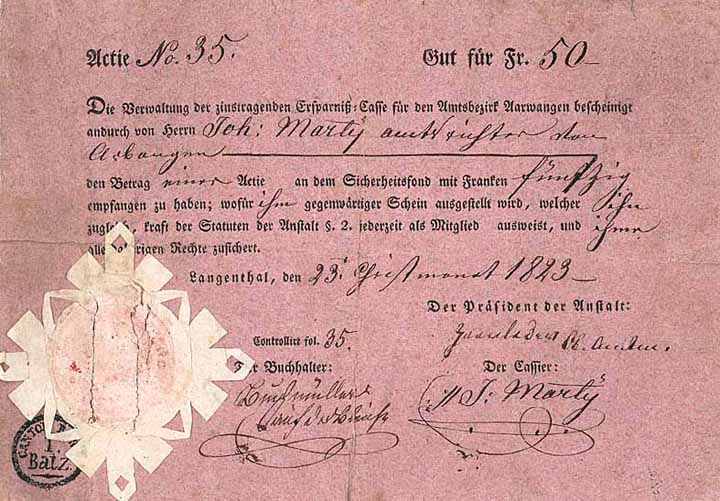 Actie No. 35.
Gut für Fr. 50
Die Verwaltung der zinstragenden Ersparniß-Casse für den Amtsbezirk Aarwangen bescheinigt
andurch von Herrn Joh: Marty amtsrichter von
den Betrag einer Actie an dem Sicherheitsfond mit Franken fünfzig
empfangen zu haben; wofür ihm gegenwärtiger Schein ausgestellt wird, welcher ihn
zugleich, kraft der Statuten der Anstalt §. 2. jederzeit als Mitglied ausweist, und ihme
alle Rechte zusichert.
Langenthal, den 23t Christmonat 1823
Der Präsident der Anstalt:
Controllirt fol. 35.
Der Buchhalter:
Der Cassier:
Buchmüller
J: Marty
CANTON
1.
Batz.